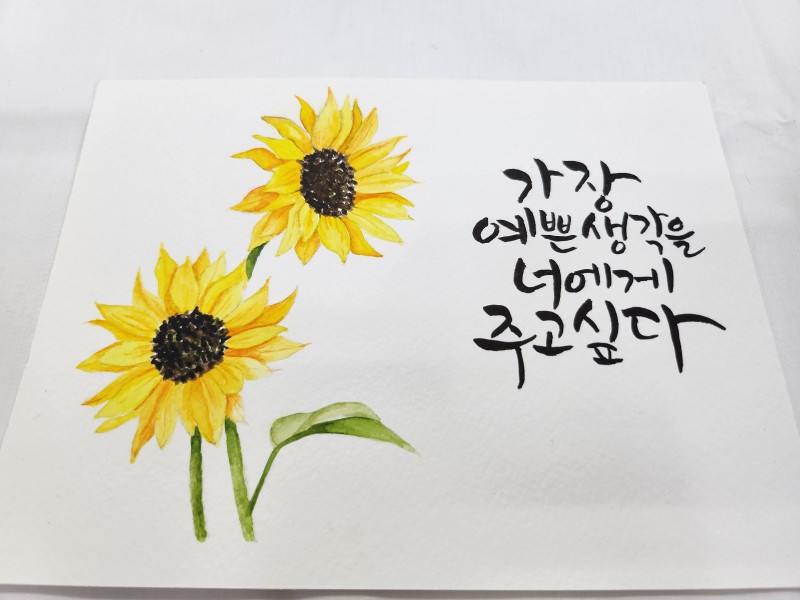 가장
예쁜 생각을
너에게
주고싶다